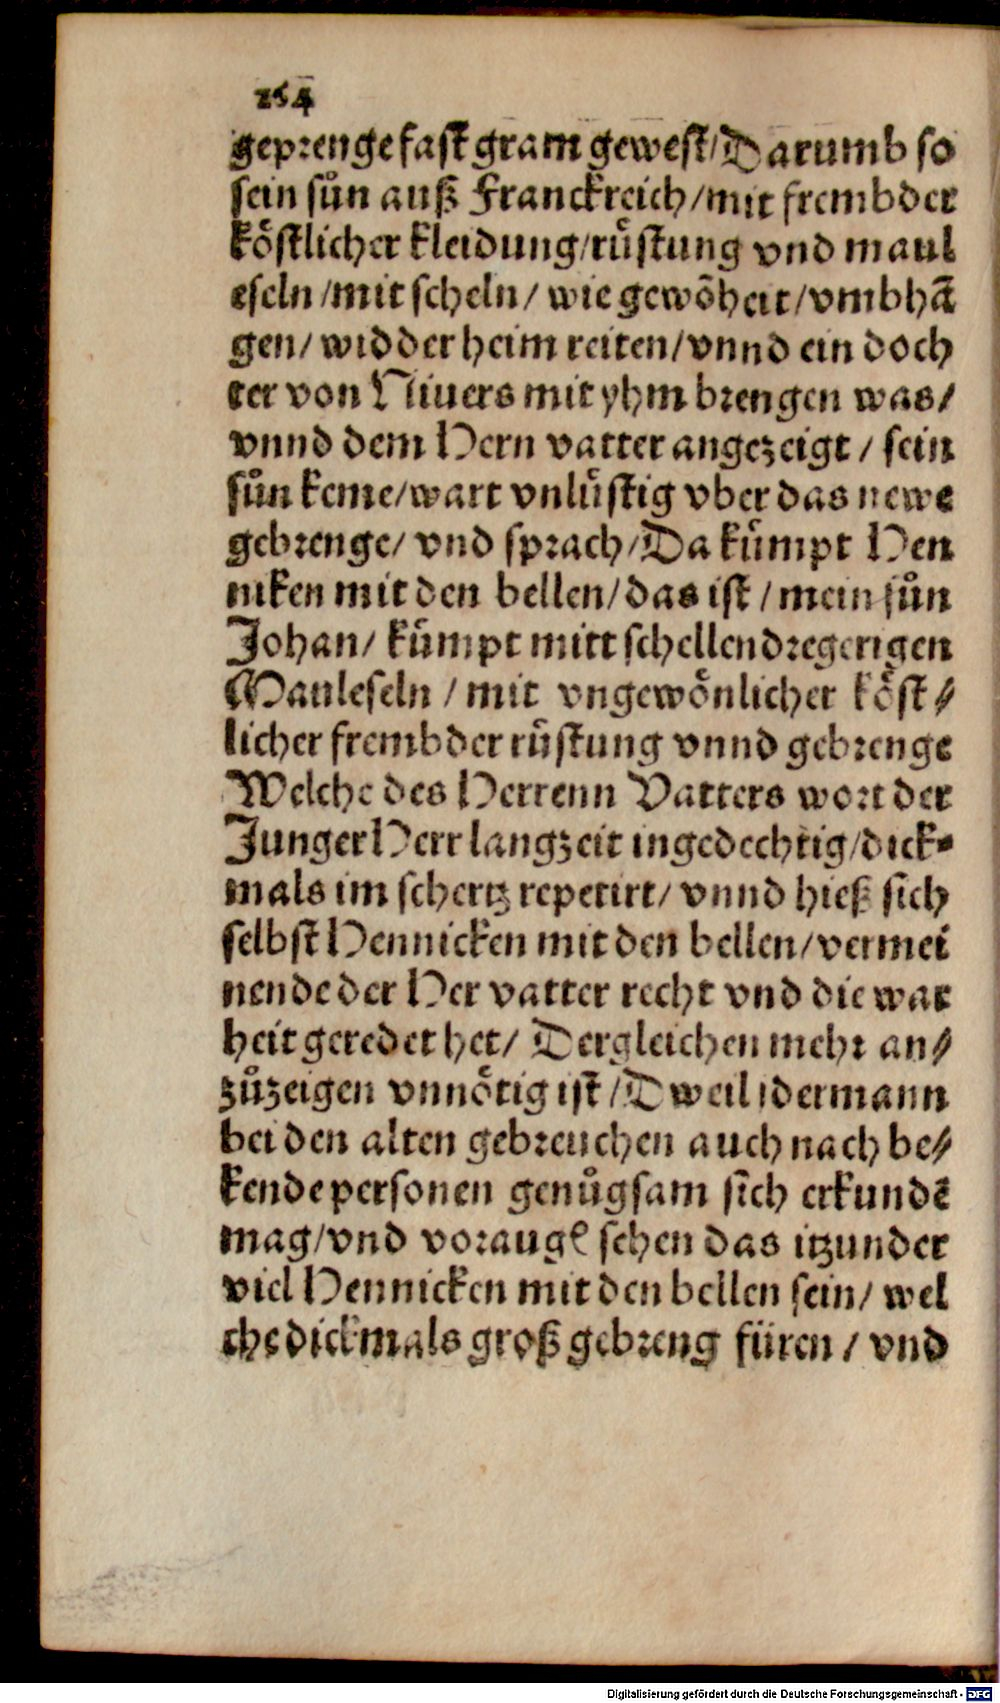 254
geprenge fast gram gewest/Darumb so
sein sůn auß Franckreich/mit frembder
köstlicher kleidung/rüstung vnd maul
eseln/mit scheln/ wie gewõheit/vmbhã
gen/ widder heim reiten/vnnd ein doch
ter von Niuers mit yhm brengen was/
vnnd dem Hern vatter angezeigt / sein
sůn keme/wart vnlüstig vber das newe
gebrenge/ vnd sprach/Da kümpt Hen
niken mit den bellen/das ist / mein sůn
Johan/ kümpt mitt schellendregerigen
Mauleseln / mit vngewönlicher köst⸗
licher frembder rüstung vnnd gebrenge
Welche des Herrenn Vatters wort der
Junger Herr langzeit ingedechtig/dick⸗
mals im schertz repetirt/ vnnd hieß sich
selbst Hennicken mit den bellen/vermei
nende der Her vatter recht vnd die war
heit geredet het/ Dergleichen mehr an⸗
zůzeigen vnnötig ist/Dweil idermann
bei den alten gebreuchen auch nach be⸗
kende personen genůgsam sich erkundẽ
mag/vnd voraugẽ sehen das itzunder
viel Hennicken mit den bellen sein/ wel
che dickmals groß gebreng füren / vnd
Digitalisierung gefördert durch die Deutsche Forschungsgemeinschaft - DFG